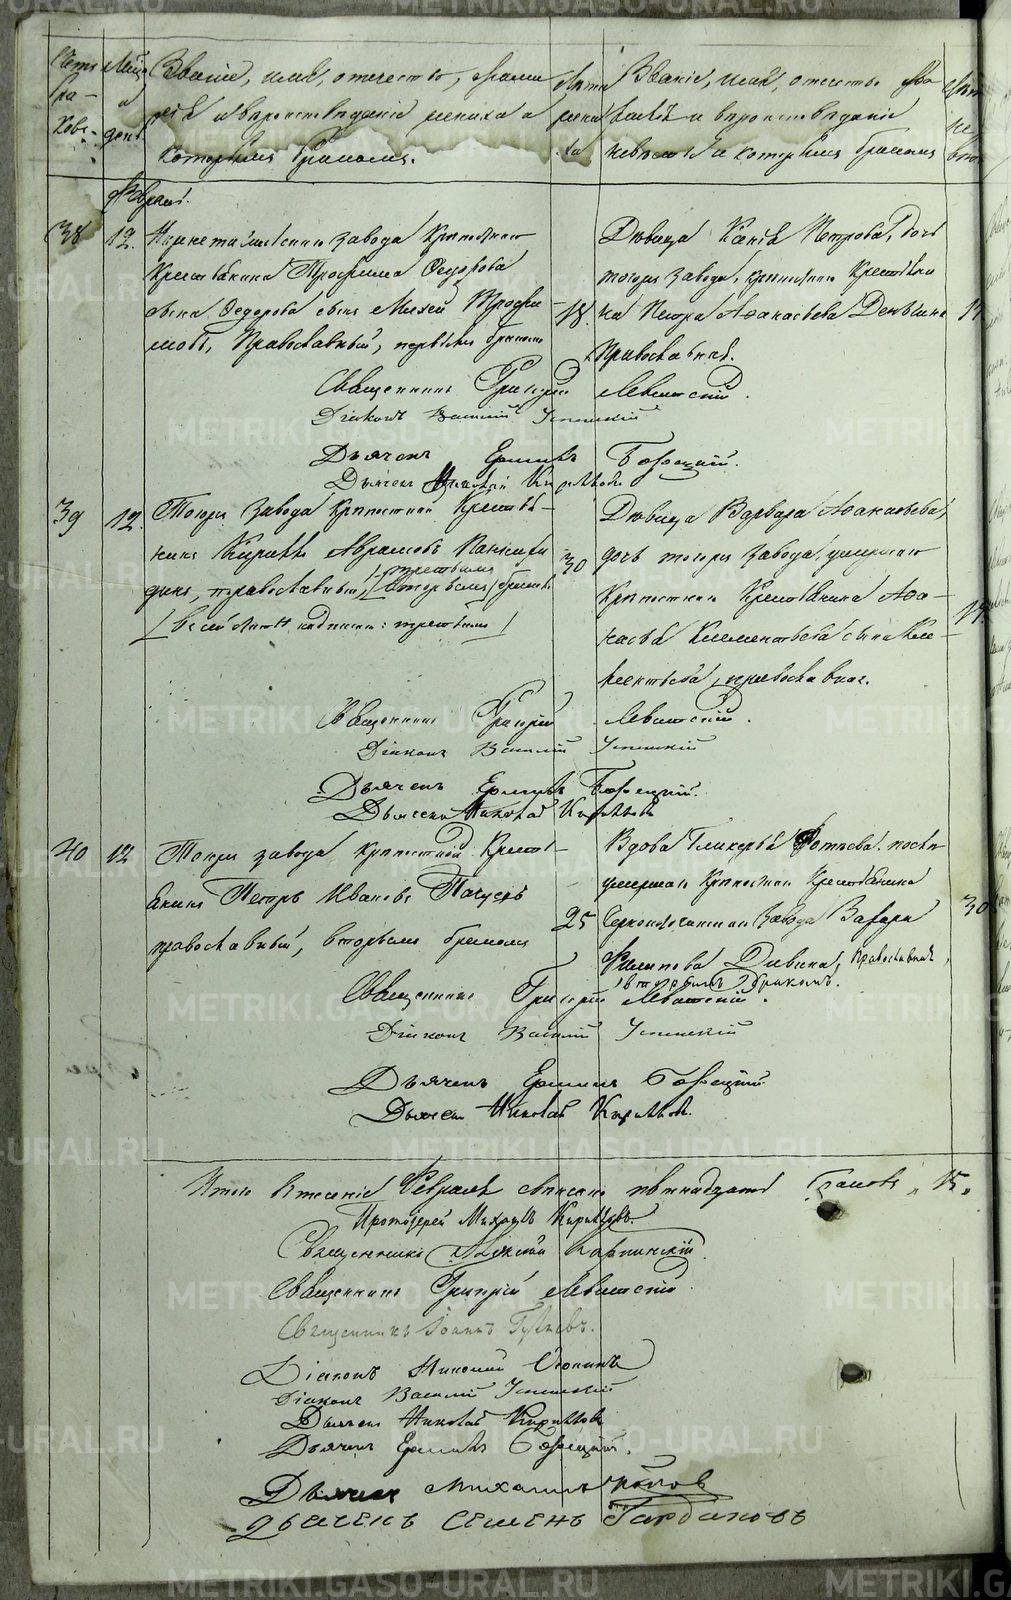 Звание, имя, отчество, фами-
лия и вероисповедание жениха и
которым браком.
Лета жениха
Звание, имя, отчество, фа-
милия и вероисповедание
невесты и которым браком
Февраль.
38 12.
завода крепостнаго
крестьянина Трофима Федорова
сына Федорова сын Михей Трофи-
мовъ, Православный, первымъ бракомъ
18.
Девица Ксенія Петрова, дочь
тогоже завода, крепостнаго крестьяни-
на Петра Афанасьева Деньгина
Православная.
Священникъ Григорій Левитскій.
Діаконъ Василій Успенскій
Дьячекъ Ермилъ Борецкій.
Дьячекъ Николай Кирилловъ
39 12.
Тогоже завода крепостной Крестья-
нинъ Кирилъ Аврамовъ
динъ, православный, вторымъ бракомъ
третьимъ
/ в сей статье надписано: третьимъ /
30
Девица Варвара Афанасьева,
дочь тогоже завода, умершаго
крепостнаго Крестьянина Афа-
насья Клементьева сына Кле-
ментьева, православная.
19.
Священникъ Григорій Левитскій.
Діаконъ Василій Успенскій
Дьячекъ Ермилъ Борецкій.
Дьячекъ Николай Кирилловъ
40 12
Тогоже завода крепостной Кресть-
янинъ Петръ Ивановъ
православный, вторымъ бракомъ
25
Вдова Гликерья Фотьева, после
умершаго Крепостнаго Крестьянина
завода Захара
Филипова Дивина, Православная,
вторымъ бракомъ.
30
Священникъ Григорій Левитскій.
Діаконъ Василій Успенскій
Дьячекъ Ермилъ Борецкій
Дьячекъ Николай Кирилловъ.
Итого в месяце Феврале списано пятнадцать браковъ „ 15 „
Протоіерей Михаилъ Кирилловъ.
Священникъ Алексій Карпинскій
Священникъ Григорій Левитскій
Священникъ Іоаннъ
Діаконъ Николай
Діаконъ Василій Успенскій
Дьячекъ Николай Кирилловъ
Дьячекъ Ермилъ Борецкій.
Дьячекъ Михаилъ Поповъ
Дьячекъ Семенъ Гардановъ
METRIKI.GASO-URAL.RU